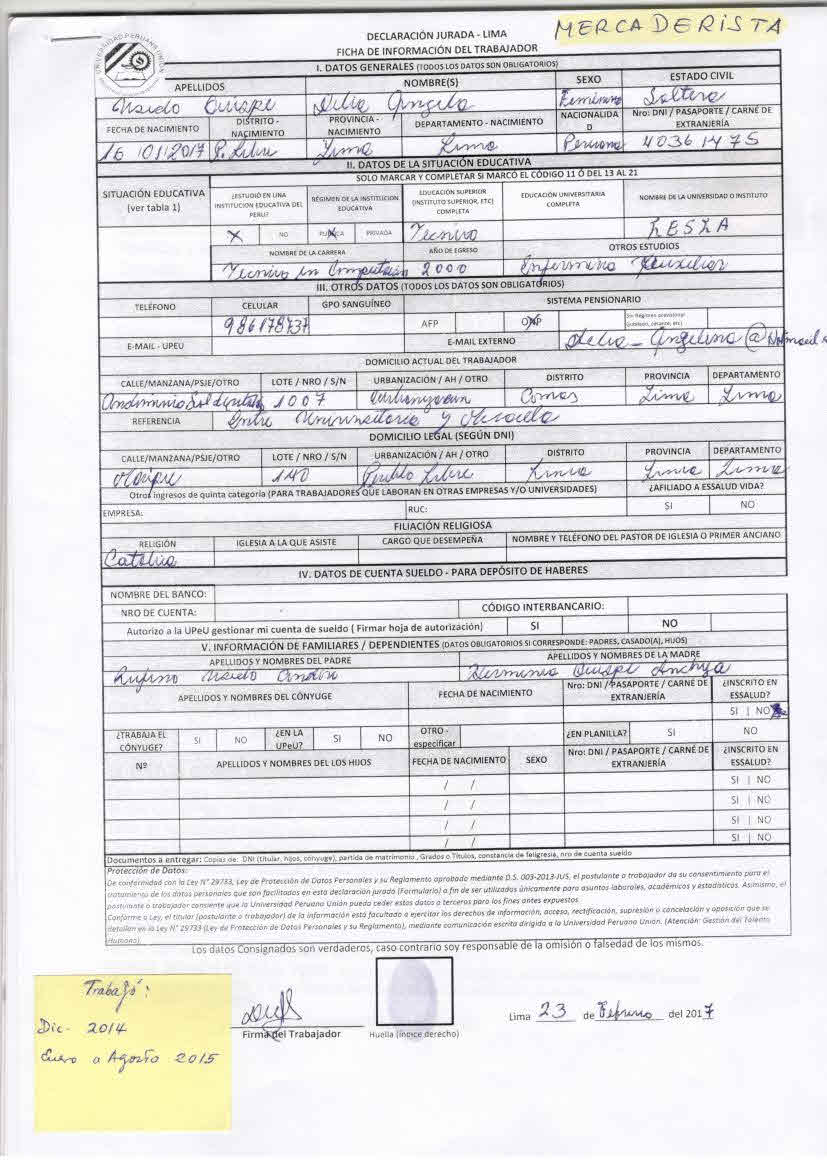 MERCADERISTA
UNIVERSIDAD PERUANA UNIÓN
DECLARACIÓN JURADA - LIMA
FICHA DE INFORMACIÓN DEL TRABAJADOR
I. DATOS GENERALES (TODOS LOS DATOS SON OBLIGATORIOS)
APELLIDOS NOMBRE(S) SEXO ESTADO CIVIL
Quispe Delia Angela Femenino Soltera
FECHA DE NACIMIENTO DISTRITO - NACIMIENTO PROVINCIA - NACIMIENTO DEPARTAMENTO - NACIMIENTO NACIONALIDAD Nro: DNI / PASAPORTE / CARNÉ DE EXTRANJERÍA
16/01/2017 P. Libre Lima Lima Peruana 40361475
II. DATOS DE LA SITUACIÓN EDUCATIVA
SOLO MARCAR Y COMPLETAR SI MARCÓ EL CÓDIGO 11 Ó DEL 13 AL 21
SITUACIÓN EDUCATIVA (ver tabla 1) ¿ESTUDIÓ EN UNA INSTITUCION EDUCATIVA DEL PERU? RÉGIMEN DE LA INSTITUCION EDUCATIVA EDUCACIÓN SUPERIOR (INSTITUTO SUPERIOR, ETC) COMPLETA EDUCACIÓN UNIVERSITARIA COMPLETA NOMBRE DE LA UNIVERSIDAD O INSTITUTO
X NO PUBLICA PRIVADA Tecnico
NOMBRE DE LA CARRERA AÑO DE EGRESO OTROS ESTUDIOS
Tecnico en Computación 2000 Enfermeria Auxiliar
III. OTROS DATOS (TODOS LOS DATOS SON OBLIGATORIOS)
TELÉFONO CELULAR GPO SANGUÍNEO SISTEMA PENSIONARIO
986178737 AFP ONP Sin Régimen previsional (jubilado, cesante, etc)
E-MAIL - UPEU E-MAIL EXTERNO Delia_Angelina@Hotmail
DOMICILIO ACTUAL DEL TRABAJADOR
CALLE/MANZANA/PSJE/OTRO LOTE / NRO / S/N URBANIZACIÓN / AH / OTRO DISTRITO PROVINCIA DEPARTAMENTO
1007 Comas Lima Lima
REFERENCIA Entre Universitaria y
DOMICILIO LEGAL (SEGÚN DNI)
CALLE/MANZANA/PSJE/OTRO LOTE / NRO / S/N URBANIZACIÓN / AH / OTRO DISTRITO PROVINCIA DEPARTAMENTO
140 Pueblo Libre Lima Lima Lima
Otros ingresos de quinta categoria (PARA TRABAJADORES QUE LABORAN EN OTRAS EMPRESAS Y/O UNIVERSIDADES) ¿AFILIADO A ESSALUD VIDA?
EMPRESA: RUC: SI NO
FILIACIÓN RELIGIOSA
RELIGIÓN IGLESIA A LA QUE ASISTE CARGO QUE DESEMPEÑA NOMBRE Y TELÉFONO DEL PASTOR DE IGLESIA O PRIMER ANCIANO
Catolica
IV. DATOS DE CUENTA SUELDO - PARA DEPÓSITO DE HABERES
NOMBRE DEL BANCO:
NRO DE CUENTA: CÓDIGO INTERBANCARIO:
Autorizo a la UPeU gestionar mi cuenta de sueldo ( Firmar hoja de autorización) SI NO
V. INFORMACIÓN DE FAMILIARES / DEPENDIENTES (DATOS OBLIGATORIOS SI CORRESPONDE: PADRES, CASADO(A), HIJOS)
APELLIDOS Y NOMBRES DEL PADRE APELLIDOS Y NOMBRES DE LA MADRE
Rufino Herminia Quispe
APELLIDOS Y NOMBRES DEL CÓNYUGE FECHA DE NACIMIENTO Nro: DNI / PASAPORTE / CARNÉ DE EXTRANJERÍA ¿INSCRITO EN ESSALUD?
SI | NO
¿TRABAJA EL CÓNYUGE? SI NO ¿EN LA UPeU? SI NO OTRO - especificar ¿EN PLANILLA? SI NO
Nº APELLIDOS Y NOMBRES DEL LOS HIJOS FECHA DE NACIMIENTO SEXO Nro: DNI / PASAPORTE / CARNÉ DE EXTRANJERÍA ¿INSCRITO EN ESSALUD?
/ / SI | NO
/ / SI | NO
/ / SI | NO
/ / SI | NO
Documentos a entregar: Copias de: DNI (titular, hijos, cónyuge), partida de matrimonio , Grados o Títulos, constancia de feligresía, nro de cuenta sueldo
Protección de Datos:
De conformidad con la Ley N° 29733, Ley de Protección de Datos Personales y su Reglamento aprobado mediante D.S. 003-2013-JUS, el postulante o trabajador da su consentimiento para el
tratamiento de los datos personales que son facilitados en esta declaración jurada (Formulario) a fin de ser utilizados únicamente para asuntos laborales, académicos y estadísticos. Asimismo, el
postulante o trabajador consiente que la Universidad Peruana Unión pueda ceder estos datos a terceros para los fines antes expuestos
Conforme a Ley, el titular (postulante o trabajador) de la información está facultado a ejercitar los derechos de información, acceso, rectificación, supresión o cancelación y oposición que se
detallan en la Ley N° 29733 (Ley de Protección de Datos Personales y su Reglamento), mediante comunicación escrita dirigida a la Universidad Peruana Unión. (Atención: Gestión del Talento
Humano).
Los datos Consignados son verdaderos, caso contrario soy responsable de la omisión o falsedad de los mismos.
Trabajó:
Dic- 2014
Enero a Agosto 2015
Firma del Trabajador Huella (índice derecho)
Lima 23 de Febrero del 2017